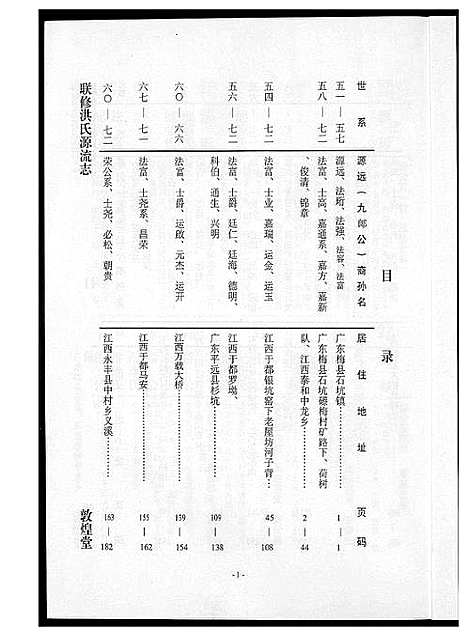 目 录
世系 源远（九郎公）裔孙名 居住地址 页码
五一—五七 源远、法珩、法强、法容、法富 广东梅县石坑镇 1—1
五八—七二 法富、士高、嘉通系、嘉方、嘉新、俊清、锦章 广东梅县石坑碾梅村矿路下、荷树队、江西泰和中龙乡 2—44
五四—七二 法富、士业、嘉瑞、运金、运玉 江西于都银坑窑下老屋坊河子背 45—108
五六—七二 法富、士爵、廷仁、廷海、德明、科伯、通生、兴明 江西于都罗坳、广东平远县杉坑 109—138
六〇—六六 法富、士爵、运啟、元杰、运开 江西万载大桥 139—154
六七—七一 法富、士尧系、昌荣 江西于都马安 155—162
六〇—七二 荣公系、士尧、必松、朝贵 江西永丰县中村乡义溪 163—182
联修洪氏源流志
敦煌堂
-1-